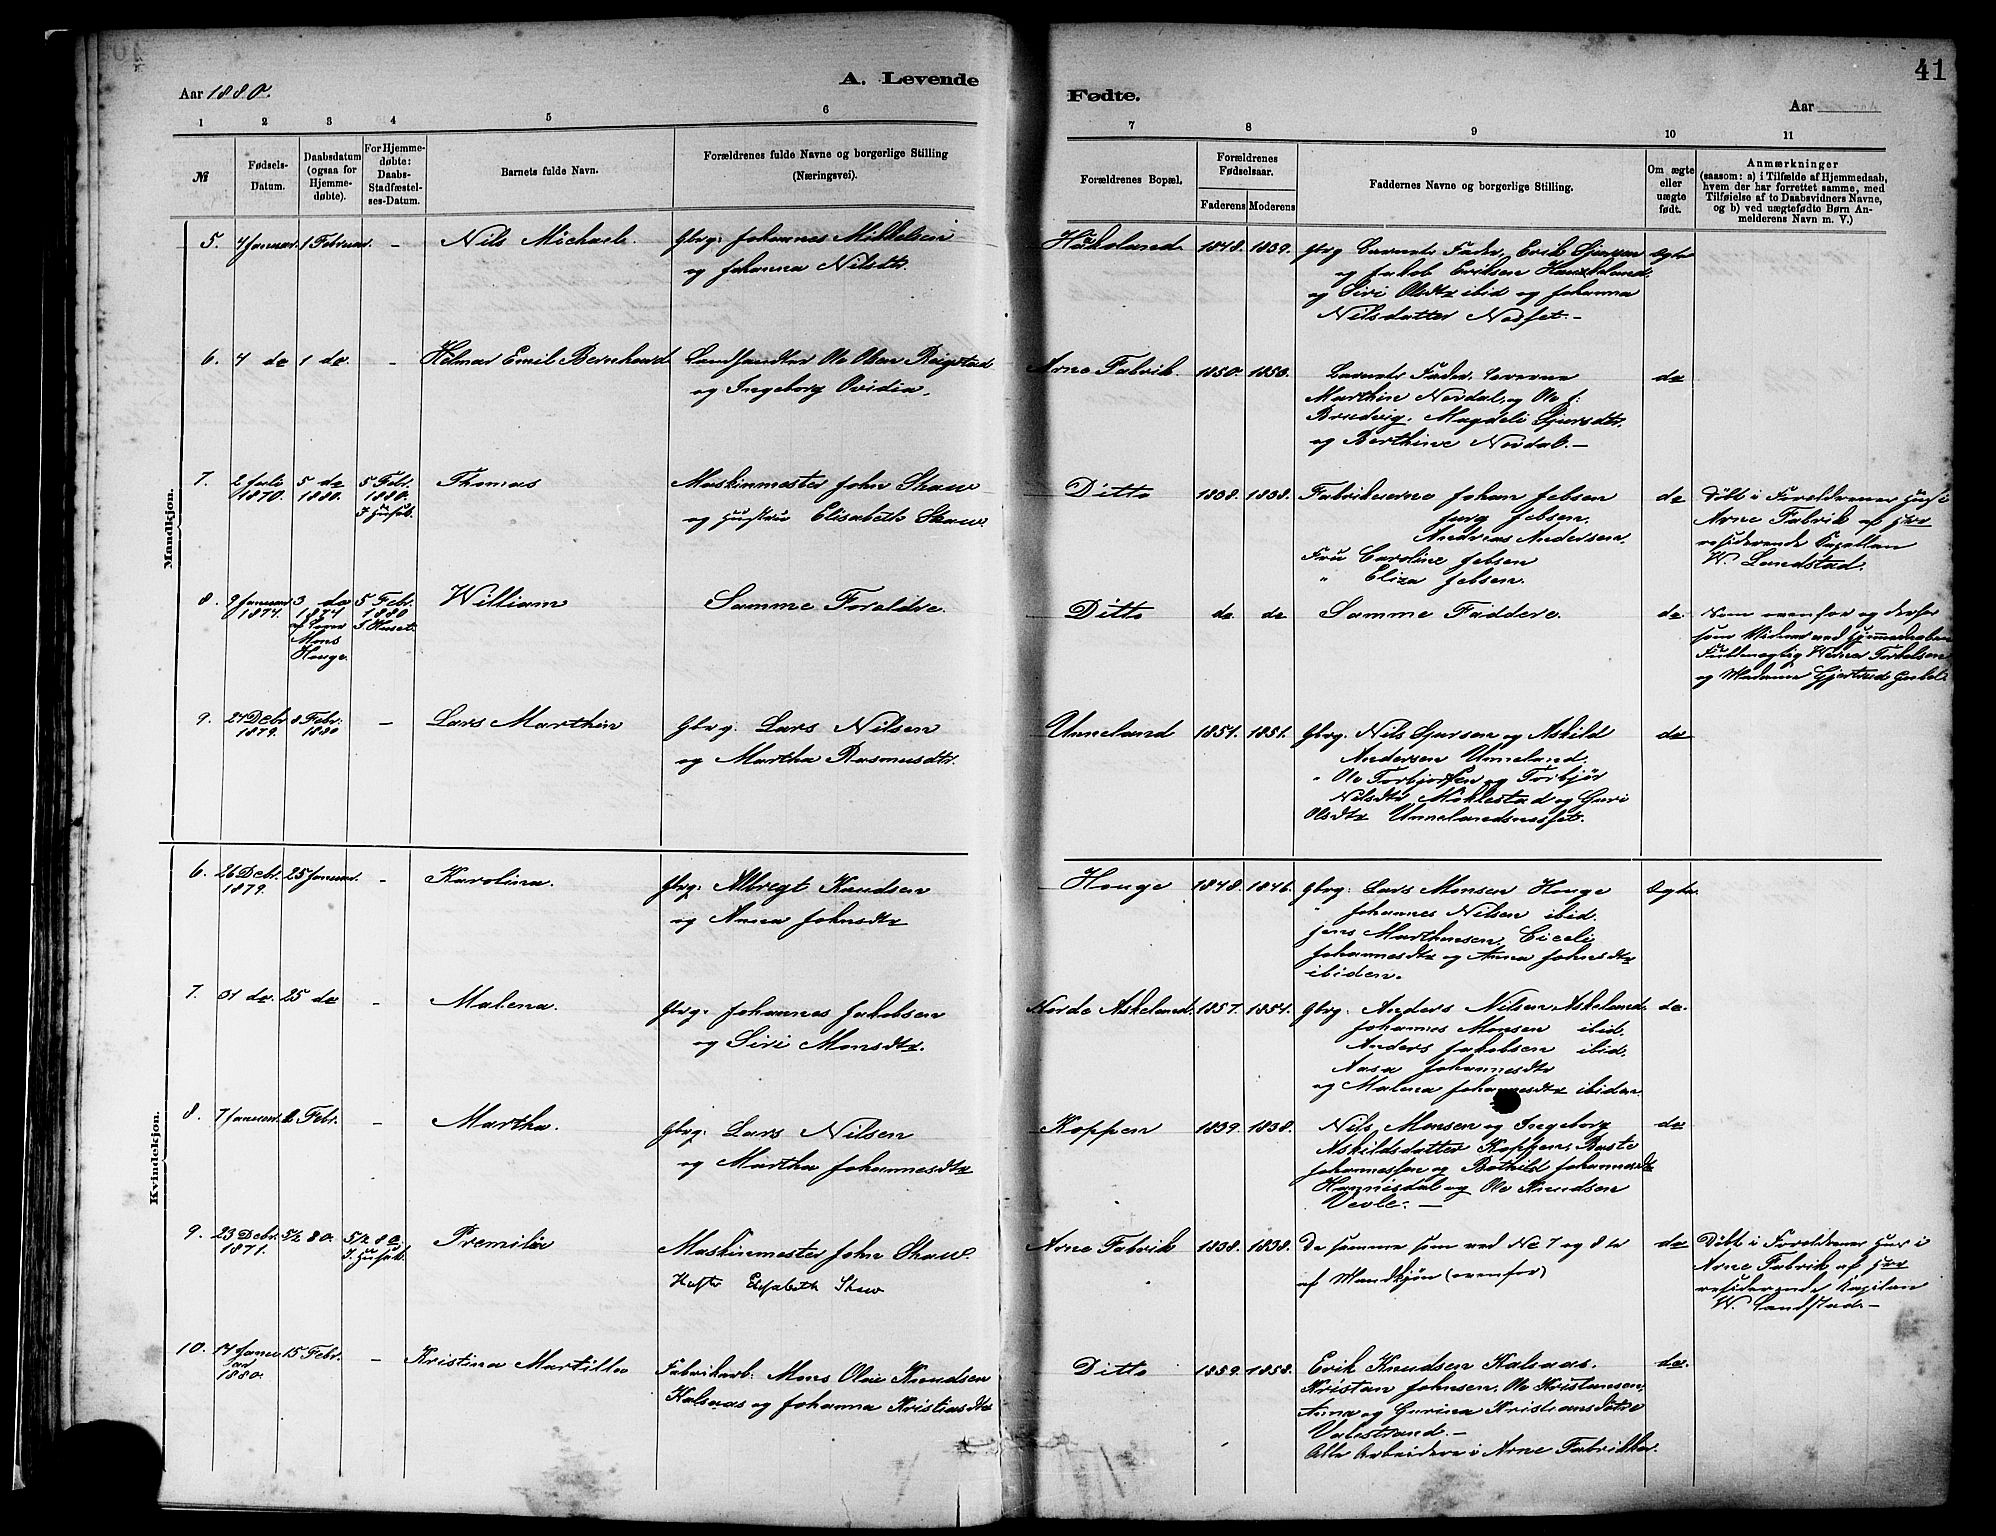 A. Levende Fødte.
41
Aar 1880.
Aar
1 2 3 4 5 6 7 8 9 10 11
№
Fødsels-
Datum.
Daabsdatum
(ogsaa for
Hjemme-
døbte).
For Hjemme-
døbte:
Daabs-
Stadfæstel-
ses-Datum.
Barnets fulde Navn.
Forældrenes fulde Navne og borgerlige Stilling
(Næringsvei).
Forældrenes Bopæl,
Forældrenes
Fødselsaar.
Faderens Moderens
Faddernes Navne og borgerlige Stilling.
Om ægte
eller
uægte
født.
Anmærkninger
(saasom: a) i Tilfælde af Hjemmedaab,
hvem der har forrettet samme, med
Tilføielse af to Daabsvidners Navne,
og b) ved uægtefødte Børn An-
melderens Navn m. V.)
Mandkjøn.
5. 4 Januar. 1 Februar. - Nils Michael.
Gbrg: Johannes Mikkelsen
og Johanna Nilsdtr.
1848. 1839.
Gbrg Barnets Fader, Erik
og Jakob Eriksen Haukeland.
og Siri Olsdtr ibid og Johanna
Nilsdatter Nesset.-
ægte
6. 4 do 1 do. - Hilmar Emil Bernhard
Landhandler Ole Olsen Reigstad
og Ingeborg Ovidia.
Arne Fabrik. 1850. 1850.
Barnets Fader,
Marthin Nordal, og Ole J.
Brudvig, Magdeli
og Berthine Nordal.-
do
7. 1870. 5 do 1880. 5 Febr. 1880.
Thomas
Maskinmester John Shaw
og Hustru Elisabeth Shaw.
Ditto 1838. 1838.
Fabrikeierne Johan Jebsen
Jurg Jebsen.
Andreas Andersen.
Fru Caroline Jebsen
" Eliza Jebsen.
do
Døbt i Foreldrenes Hus i
Arne Fabrik af Hrr
residerende Kapellan
W. Landstad.
8. Januar 1874. 3 do 1874 af Lærer Mons Houge. 5 Febr. 1880 i Huset.
William
Samme Foreldre.
Ditto do. do
Samme Faddere.
do.
Som ovenfor og derfor
som Vidner ved Hjemmedaaben
Fuldmægtig Werner Torkelsen
og Madame Gjertrud
9. 27 Debr 1879. 8 Febr. 1880 -
Lars Marthin
Gbrg. Lars Nilsen
og Martha Rasmusdtr.
Unneland 1854. 1851.
Gbrg. Nils og Askild
Andersen Unneland.
" Ole Torbjørsen og Torbjør
Nilsdtr Mjeldestad og Guri
Olsdtr Unnelandsnesset.
do
Kvindekjøn.
6. 26 Debr. 1879. 25 Januar. -
Karolina.
Gbrg: Albregt Knudsen
og Anna Johnsdtr
Houge 1848. 1846.
Gbrg: Lars Monsen Houge
" Johannes Nilsen ibid.
Jens Marthinsen, Siceli
Johannesdtr og Anna Johnsdtr
ibiden.
ægte
7. 31 do. 25 do -
Malena.
Gbrg: Johannes Jakobsen
og Siri Monsdtr.
Nordre Askeland. 1857. 1854.
Gbrg: Anders Nilsen Askeland.
Johannes Monsen ibid.
Anders Jakobsen ibid.
Aasa Johannesdtr
og Malena Johannesdtr ibiden.
do.
8. 7 Januar. 2 Febr. -
Martha.
Gbrg: Lars Nilsen
og Martha Johannesdtr
Koppen 1839. 1838.
Nils Monsen og Ingeborg
Askildsdatter Koppen, Baste
Johannessen og Bothild Johannesdtr
Hannisdal og Ole Knudsen
Vevle.-
do
9. 23 Debr. 1871. 5/2 80. 5/2 80 i Huset.
Premilia
Maskinmester John Shaw.
Hustru Elisabeth Shaw
Arne Fabrik 1838. 1838.
De samme som ved No 7 og 8
af Mandkjøn (ovenfor)
do
Døbt i Foreldrenes Hus i
Arne Fabrik af Hrr
residerende Kapelan
W. Landstad.-
10. 17 Januar 1880. 15 Febr. -
Kristina Martilla
Fabrikarb: Mons Olai Knudsen
Kalsaas og Johanna Kristiansdtr
Ditto 1859. 1858.
Erik Knudsen Kalsaas.
Kristan Johnsen, Ole Kristansen,
Anna og Gurina Kristiansdøtre
Valestrand.-
Alle Arbeidere i Arne Fabrikker.
do.